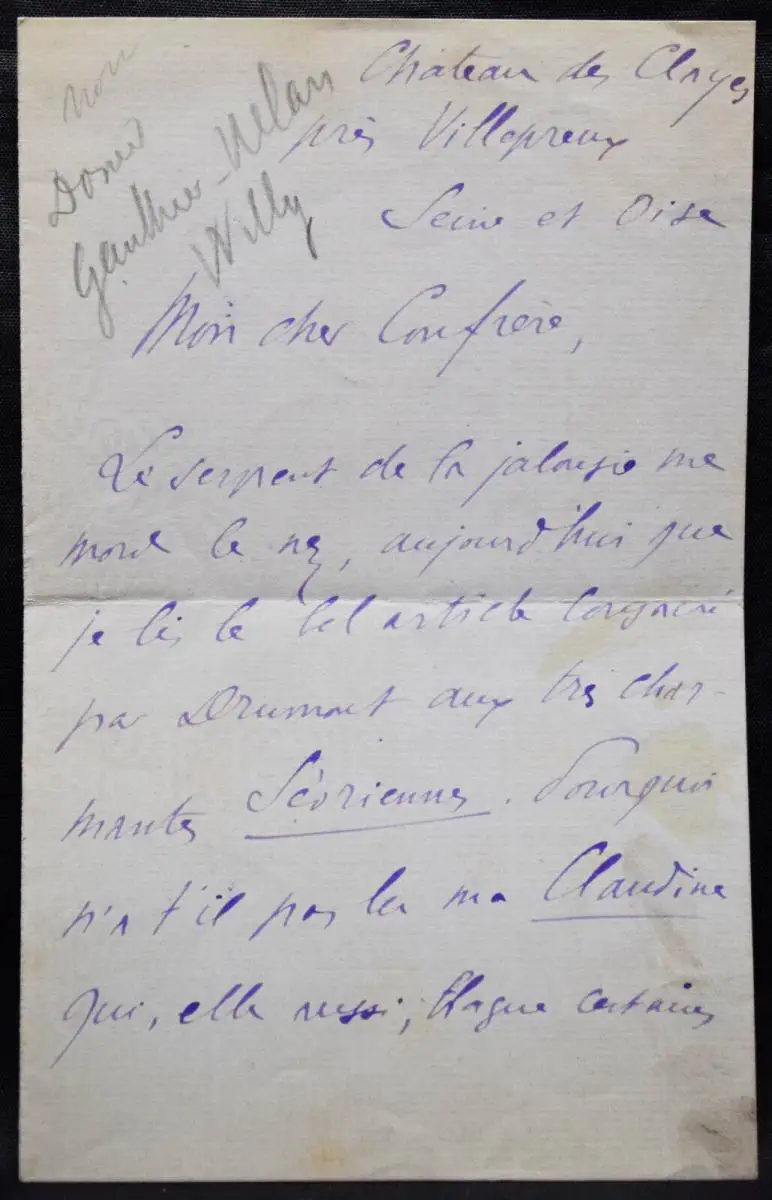 non
Donné
Gauthier-Vilars
Willy
Château des Clayes
près Villepreux
Seine et Oise
Mon cher Confrère,
Le serpent de la jalousie me
mord le nez, aujourd'hui que
je lis le bel article consacré
par Drumont aux très char-
mantes Sévriennes. Pourquoi
n'a t'il pas lu ma Claudine
qui, elle aussi, blague certaines